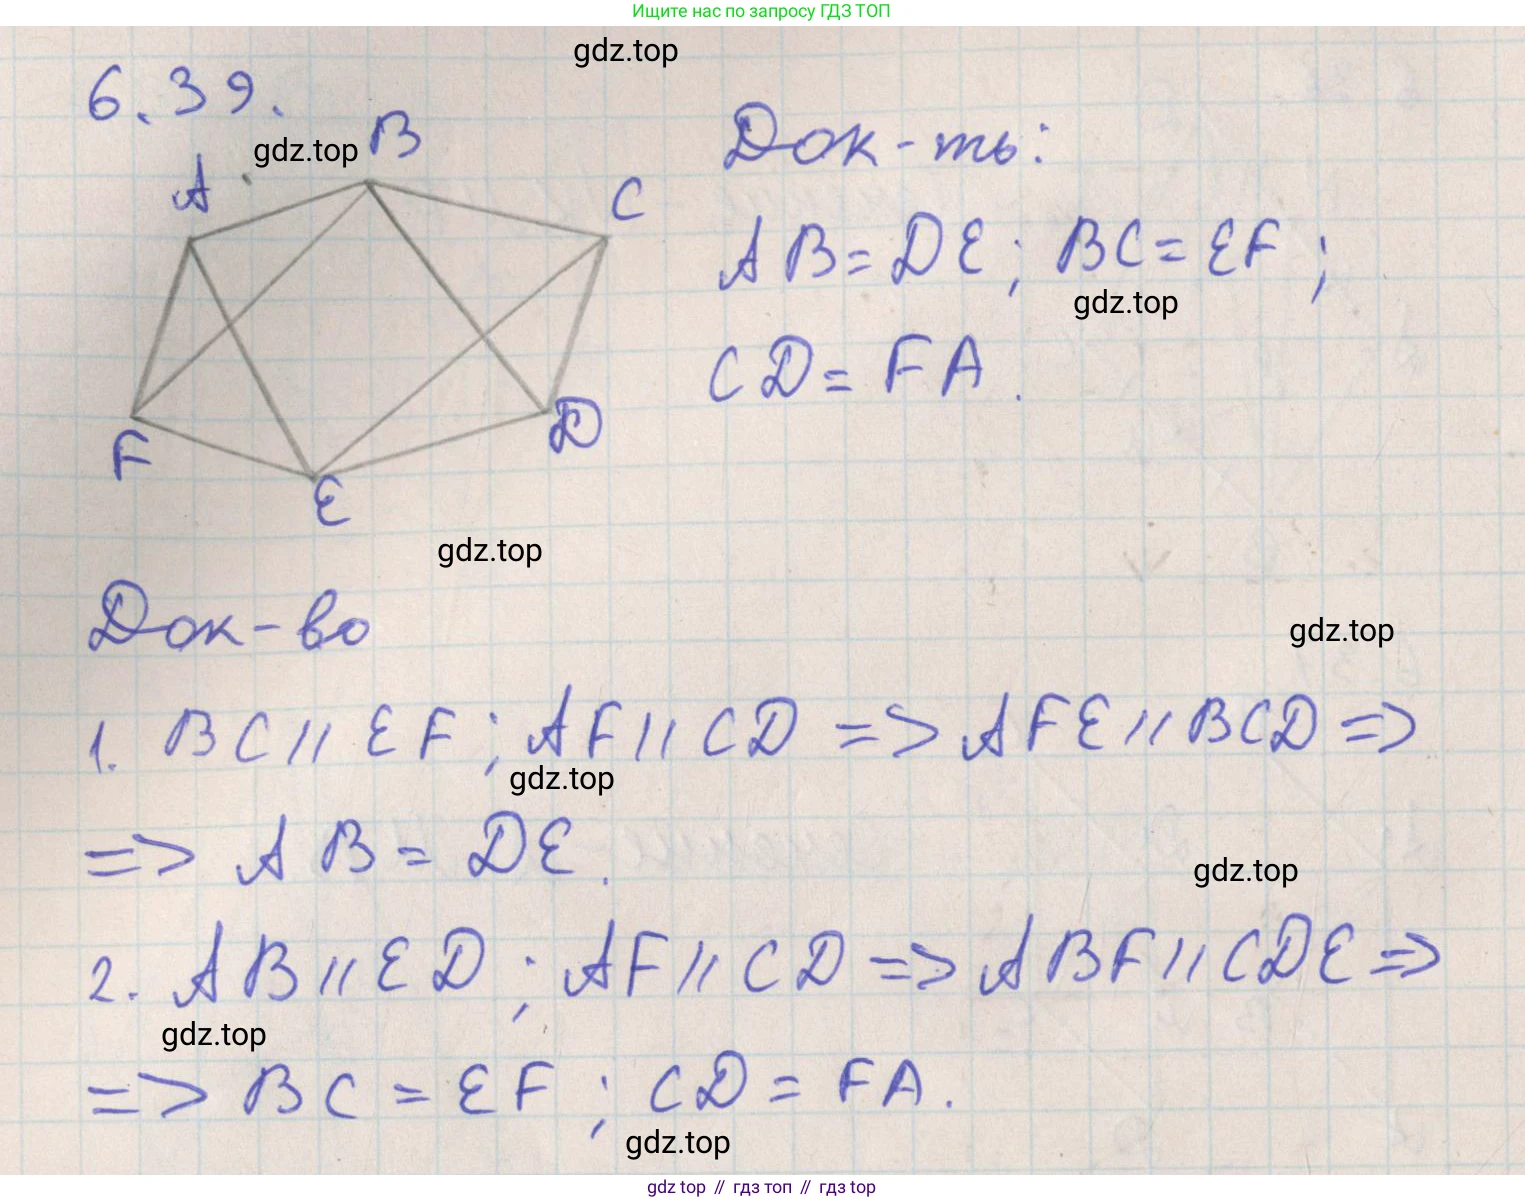 Ищите нас по запросу ГДЗ ТОП
gdz.top
6.39.
gdz.top
B
A
C
F
E
D
Док-ть:
AB=DE; BC=EF;
gdz.top
CD=FA.
gdz.top
Док-во
gdz.top
1. BC//EF; AF//CD => AFE//BCD =>
gdz.top
=> AB=DE.
gdz.top
2. AB//ED; AF//CD => ABF//CDE =>
gdz.top
=> BC=EF; CD=FA.
gdz.top
gdz top // гдз топ // гдз top